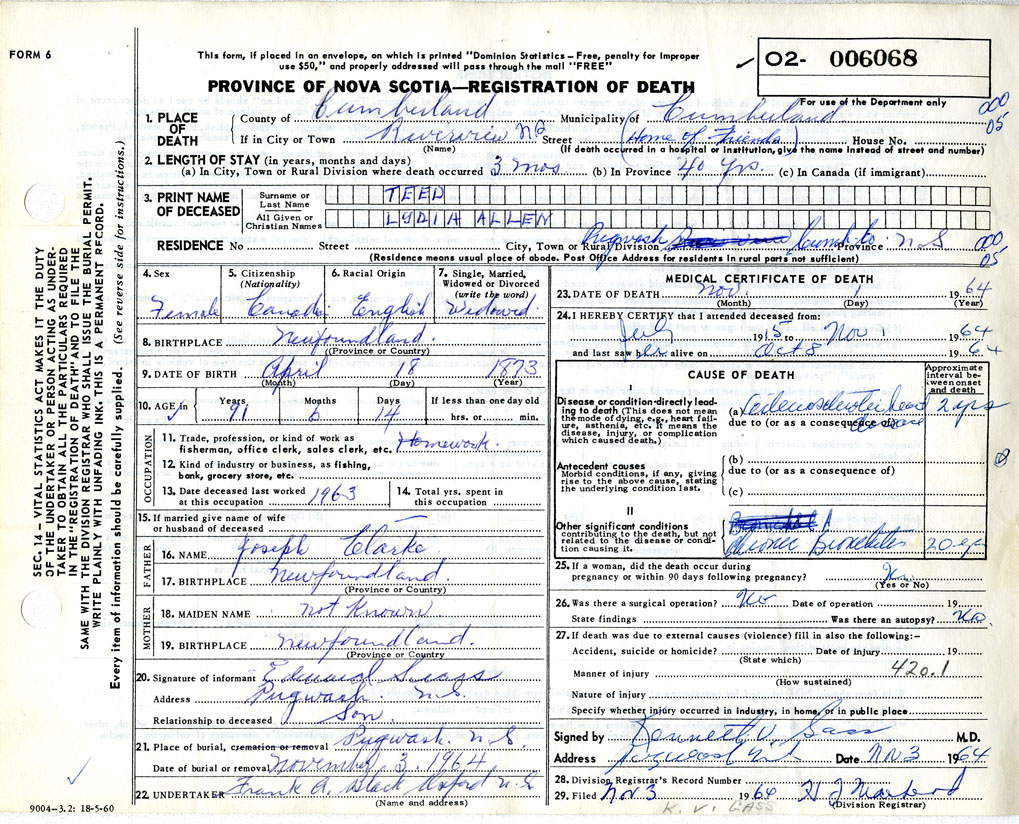 FORM 6
This form, if placed in an envelope, on which is printed "Dominion Statistics – Free, penalty for improper
use $50," and properly addressed will pass through the mail "FREE"
✓ 02- 006068
PROVINCE OF NOVA SCOTIA—REGISTRATION OF DEATH
For use of the Department only
000
05
1. PLACE OF DEATH
County of Cumberland Municipality of Cumberland
If in City or Town Riverview NS Street (Home of Friends) House No.
(Name) (If death occurred in a hospital or institution, give the name instead of street and number)
2. LENGTH OF STAY (in years, months and days)
(a) In City, Town or Rural Division where death occurred 3 mos (b) In Province 40 yrs. (c) In Canada (if immigrant)
3. PRINT NAME OF DECEASED
Surname or Last Name TEED
All Given or Christian Names LYDIA ALLEN
RESIDENCE No Street City, Town or Rural Division Pugwash Cumb. Co. Province N.S
000
05
(Residence means usual place of abode. Post Office Address for residents in rural parts not sufficient)
4. Sex
Female
5. Citizenship
(Nationality)
Canada
6. Racial Origin
English
7. Single, Married,
Widowed or Divorced
(write the word)
Widowed
8. BIRTHPLACE Newfoundland.
(Province or Country)
9. DATE OF BIRTH April 18 1873
(Month) (Day) (Year)
10. AGE in Years Months Days If less than one day old
✓ 91 6 14 hrs. or min.
OCCUPATION
11. Trade, profession, or kind of work as
fisherman, office clerk, sales clerk, etc. Homework.
12. Kind of industry or business, as fishing,
bank, grocery store, etc.
13. Date deceased last worked
at this occupation 1963
14. Total yrs. spent in
this occupation
15. If married give name of wife
or husband of deceased —
FATHER
16. NAME Joseph Clarke
17. BIRTHPLACE Newfoundland.
(Province or Country)
MOTHER
18. MAIDEN NAME not Known
19. BIRTHPLACE Newfoundland.
(Province or Country
20. Signature of informant Edward
Address Pugwash N.S.
Relationship to deceased Son.
21. Place of burial, cremation or removal Pugwash. N.S.
Date of burial or removal November 3. 1964
22. UNDERTAKER Frank A. Black Oxford N.S
(Name and address)
9004-3.2: 18-5-60
✓
MEDICAL CERTIFICATE OF DEATH
23. DATE OF DEATH Nov. 1 1964
(Month) (Day) (Year)
24. I HEREBY CERTIFY that I attended deceased from:
July 1915 to Nov 1 1964
and last saw her alive on Oct 8 1964
CAUSE OF DEATH
Approximate
interval be-
tween onset
and death
I
Disease or condition directly lead-
ing to death (This does not mean
the mode of dying, e.g., heart fail-
ure, asthenia, etc. It means the
disease, injury, or complication
which caused death.)
(a) heart disease 2 yrs
due to (or as a consequence of)
Antecedent causes
Morbid conditions, if any, giving
rise to the above cause, stating
the underlying condition last.
(b)
due to (or as a consequence of)
(c)
II
Other significant conditions
contributing to the death, but not
related to the disease or condi-
tion causing it.
Chronic Bronchitis 20 yrs
25. If a woman, did the death occur during
pregnancy or within 90 days following pregnancy? No
(Yes or No)
26. Was there a surgical operation? No Date of operation 19
State findings Was there an autopsy? No.
27. If death was due to external causes (violence) fill in also the following:–
Accident, suicide or homicide? Date of injury 19
(State which)
Manner of injury 420.1
(How sustained)
Nature of injury
Specify whether injury occurred in industry, in home, or in public place
Signed by Kenneth V. Gass M.D.
Address Pugwash N.S. Date Nov 3 1964
28. Division Registrar's Record Number
29. Filed Nov 3 1964 H J
K. V. GASS (Division Registrar)
SEC. 14 – VITAL STATISTICS ACT MAKES IT THE DUTY
OF THE UNDERTAKER OR PERSON ACTING AS UNDER-
TAKER TO OBTAIN ALL THE PARTICULARS REQUIRED
IN THE "REGISTRATION OF DEATH" AND TO FILE THE
SAME WITH THE DIVISION REGISTRAR WHO SHALL ISSUE THE BURIAL PERMIT.
WRITE PLAINLY WITH UNFADING INK. THIS IS A PERMANENT RECORD.
Every item of information should be carefully supplied. (See reverse side for instructions.)